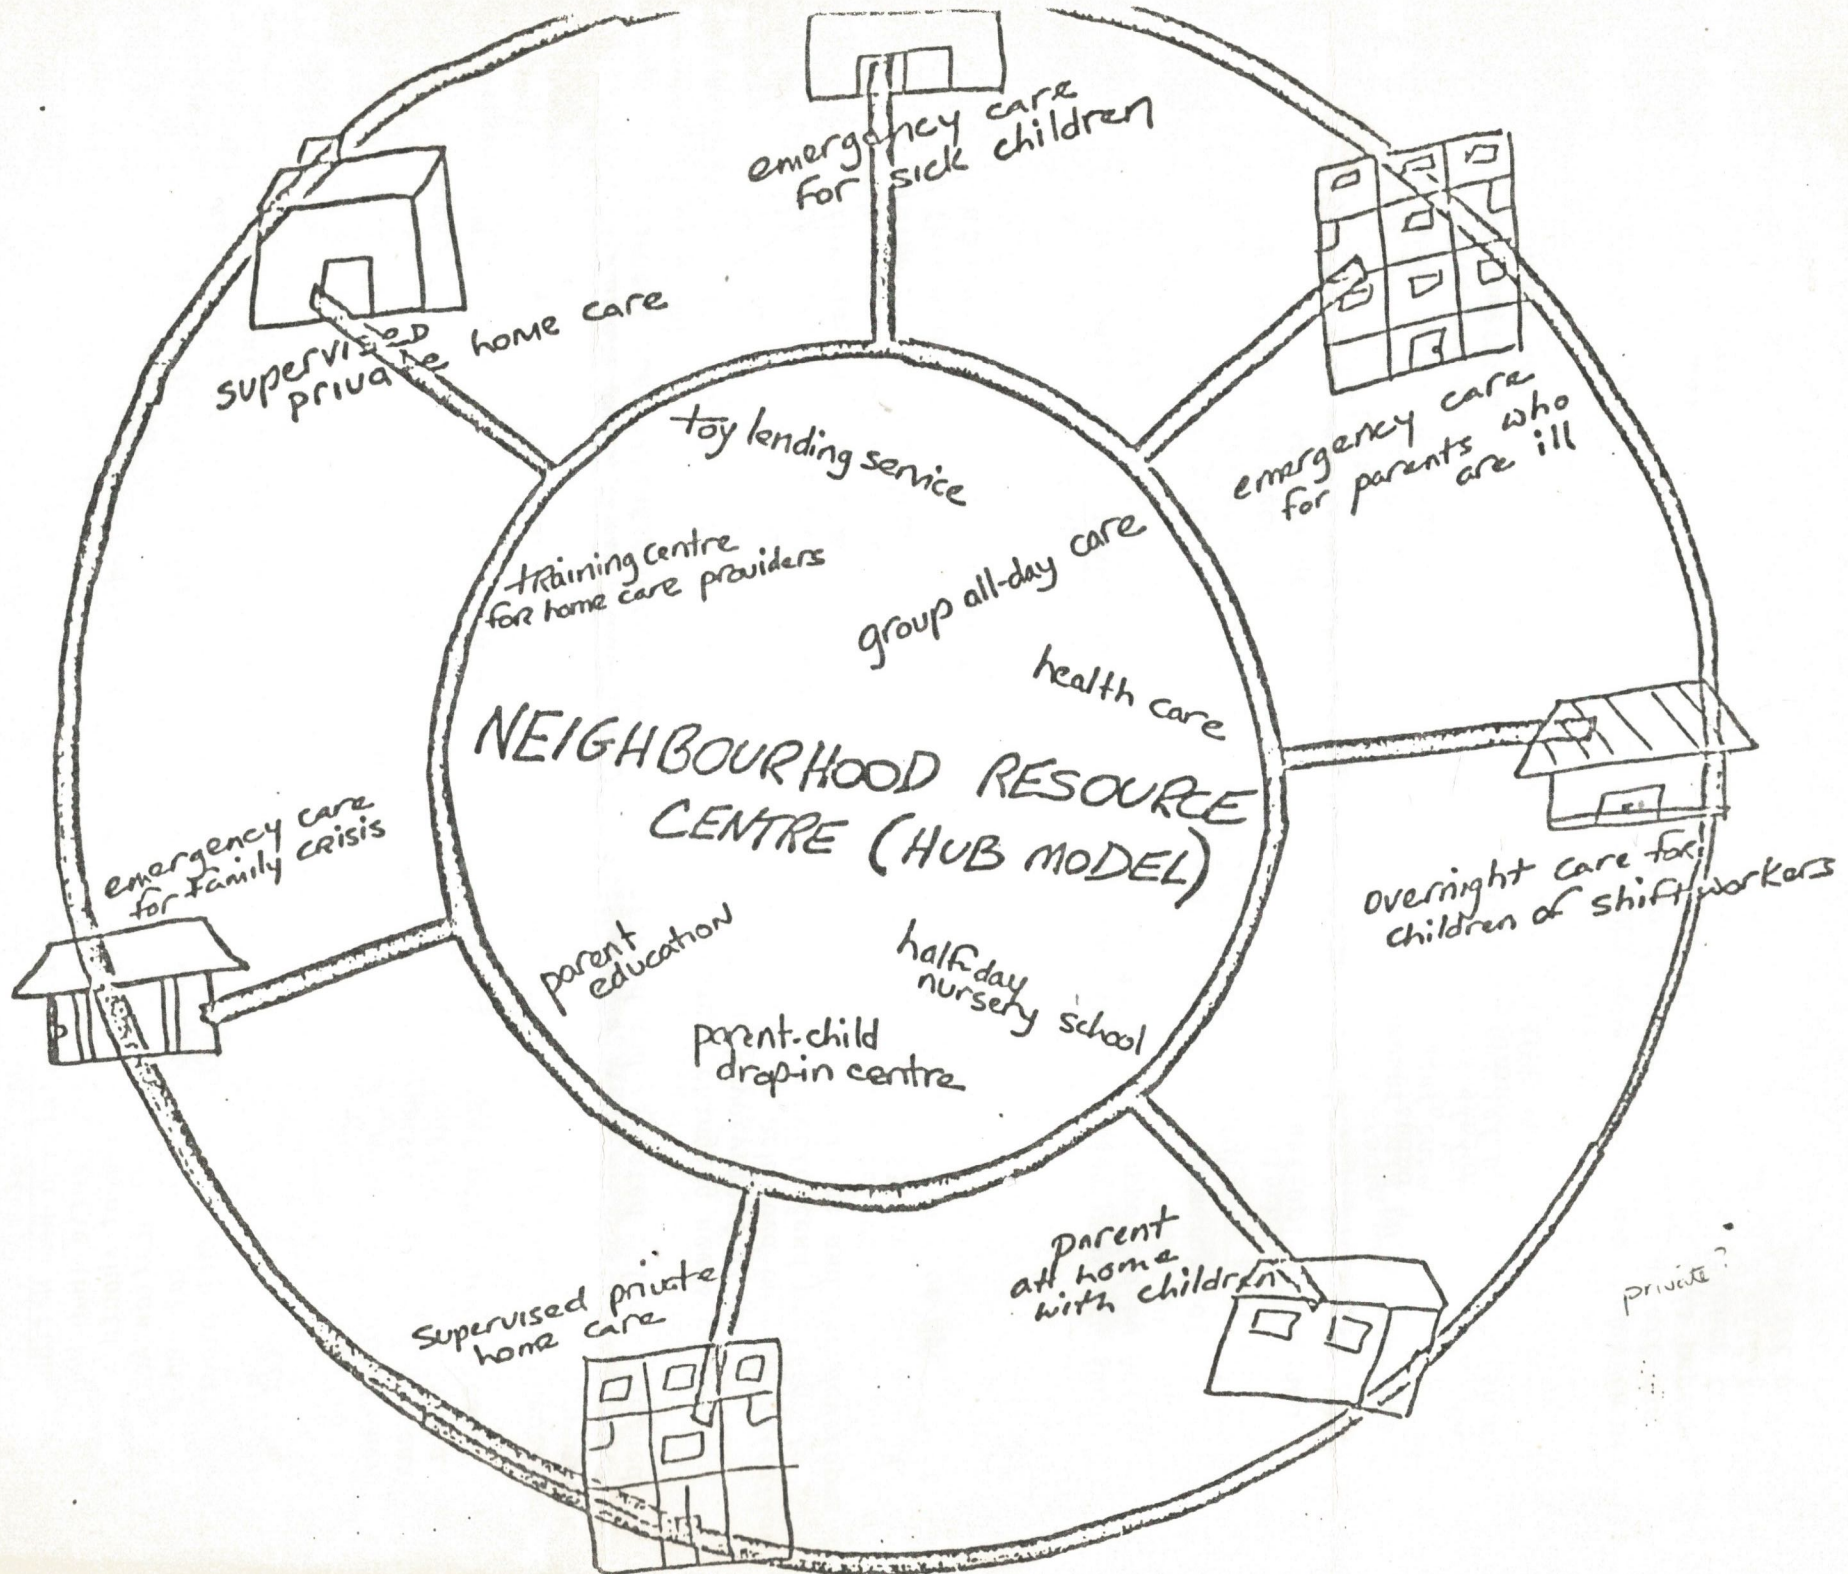 emergency care
for sick children
supervised
private home care
emergency care
for parents who
are ill
toy lending service
training centre
for home care providers
group all-day care
health care
NEIGHBOURHOOD RESOURCE
CENTRE (HUB MODEL)
emergency care
for family crisis
overnight care for
children of shift workers
parent
education
half-day
nursery school
parent-child
drop-in centre
parent
at home
with children
Supervised private
home care
private?